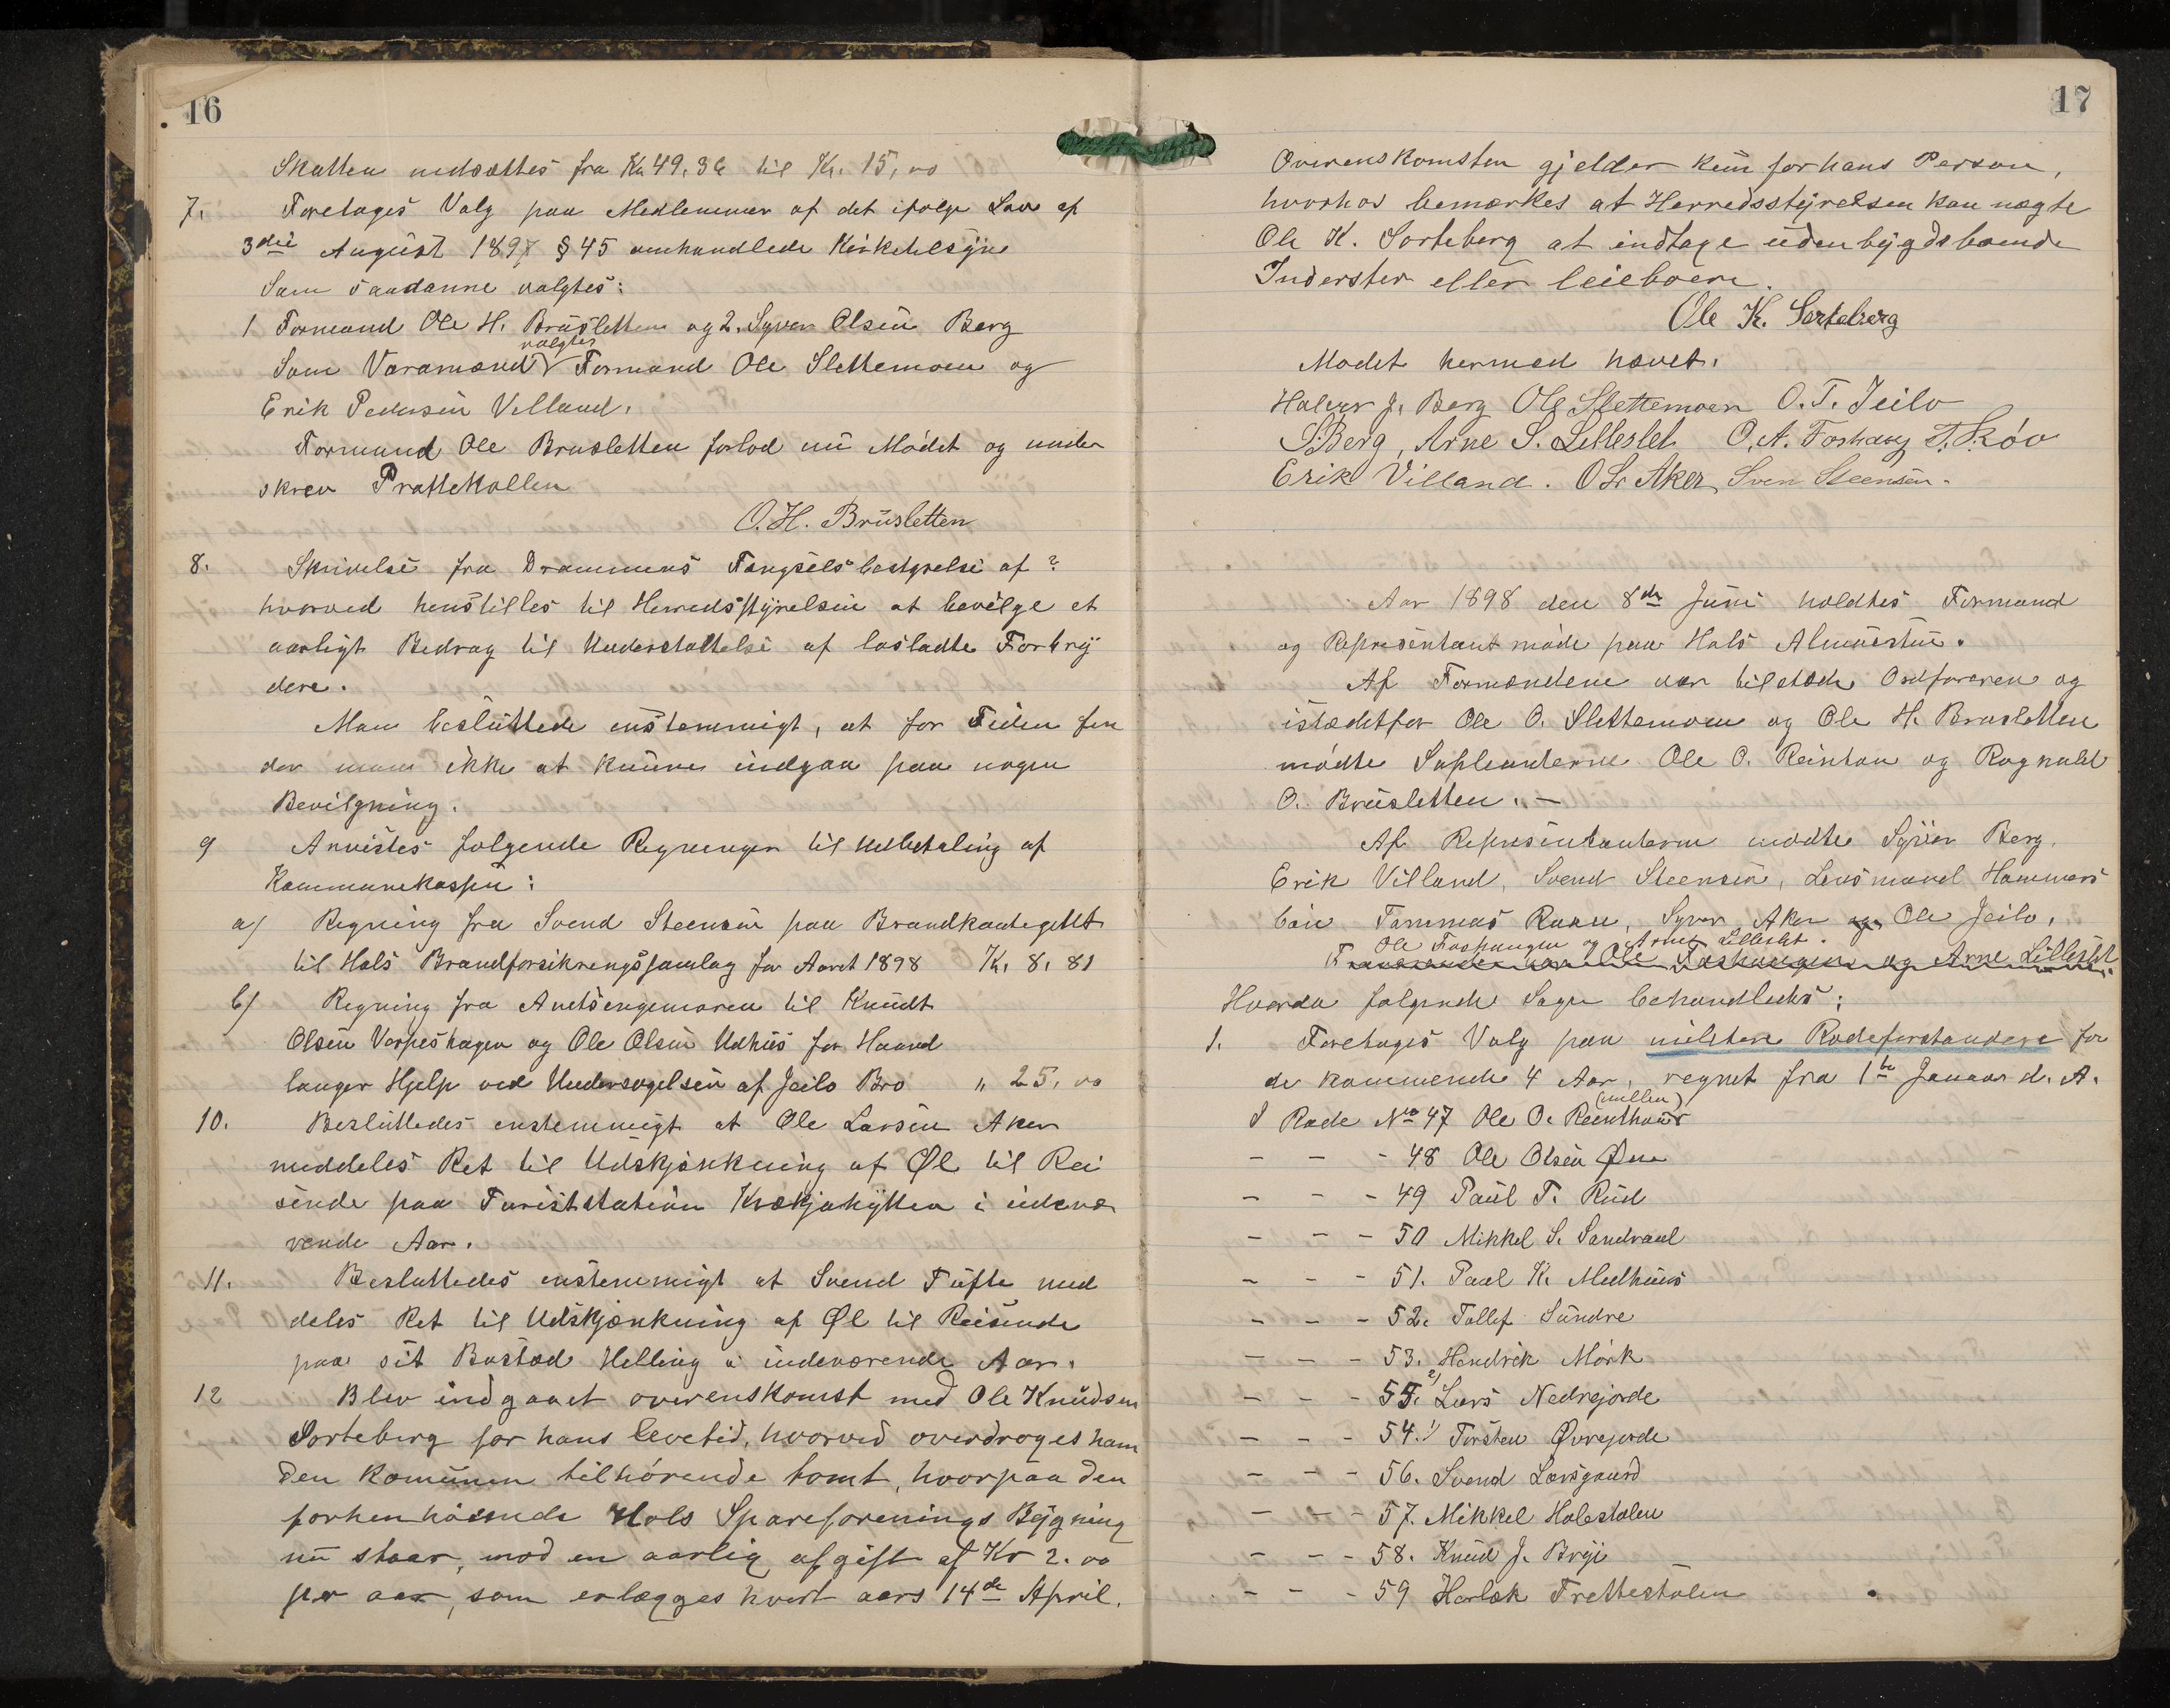 16
Skatten nedsættes fra Kr. 49,36 til Kr. 15,00
7. Foretages Valg paa Medlemmer af det ifølge Lov af
3die August 1897 § 45 omhandlede Kirketilsyn
Som saadanne valgtes:
1 Formand Ole H. Brusletten og 2. Syver Olsen Berg
valgtes
Som Varamænd Formand Ole Slettemoen og
Erik Pedersen Villand.
Formand Ole Brusletten forlod nu Mødet og under
skrev Prottekollen
O. H. Brusletten
8. Skrivelse fra Drammens Fængselsbestyrelse af ?
hvorved henstilles til Herredsstyrelsen at bevilge et
aarligt Bedrag til Understøttelse af løsladte Forbry
dere.
Man besluttede enstemmigt, at for Tiden fin
der man ikke at kunne indgaa paa nogen
Bevilgning.
9 Anvistes følgende Regninger til Udbetaling af
Kommunekassen:
a) Regning fra Svend Steensen paa Brandkontegent
til Hols Brandforsikringssamlag for Aaret 1898 Kr. 8,81
b) Regning fra Amtsingeniøren til Knudt
Olsen Varpeshagen og Ole Olsen Udhus for Haand
langer Hjelp ved Undersøgelsen af Jeilo Bro " 25,00
10. Besluttedes enstemmigt at Ole Larsen Aker
meddeles Ret til Udskjænkning af Øl til Rei
sende paa Turiststation Krækjahytten i indevæ
rende Aar.
11. Besluttedes enstemmigt at Svend Tufte med
deles Ret til Udskjænkning af Øl til Reisende
paa sit Bosted Helling i indeværende Aar.
12 Blev indgaaet overenskomst med Ole Knudsen
Sorteberg for hans levetid, hvorved overdroges ham
den Komunen tilhørende tomt, hvorpaa den
forhenværende Hols Spareforenings Bygning
nu staar, mod en aarlig afgift af Kr 2.00
pr aar, som erlægges hvert aars 14de April.
17
Overenskomsten gjelder kun for hans Person,
hvorhos bemærkes at Herredsstyrelsen kan nægte
Ole K. Sorteberg at indtage udenbygdsboende
Inderster eller leieboere.
Ole K. Sorteberg
Mødet hermed hævet.
Halvor J. Berg Ole Slettemoen O. T. Jeilo
S. Berg, Arne S. Lilleslet O. A. Foshaug T. Skóo
Erik Villand. O Lr Aker, Sven Steensen.
Aar 1898 den 8de Juni holdtes Formand
og Representantmøde paa Hols Almuestue.
Af Formændene var tilstede Ordføreren og
istædetfor Ole O. Slettemoen og Ole H. Brusletten
mødte Supleanterne Ole O. Reinton og Ragnald
O. Brusletten. –
Af Representanterne mødte Syver Berg,
Erik Villand, Svend Steensen, Lensmand Hammers
bøe Tommas Raaen, Syver Aker og Ole Jeilo,
Ole Foshaugen og Arne Lilleslet.
Fraværende var Ole Foshaugen og Arne Lilleslet
Hvorda følgende Sager behandledes:
1. Foretages Valg paa militære Rodeforstandere for
de kommende 4 Aar, regnet fra 1te Januar d. A.
(mellem)
I Rode No 47 Ole O. Reinthon
– – – 48 Ole Olsen Øen
– – – 49 Paul T. Rud
– – – 50 Mikkel S. Sandvael
– – – 51. Paal K. Medhuus
– – – 52. Tollef Sundre
– – – 53. Hendrik Mørk
– – – 55. 2) Lars Nedrejorde
– – – 54. 1) Torsten Øvrejorde
– – – 56. Svend Larsgaard
– – – 57. Mikkel Holestølen
– – – 58. Knud J. Brye
– – – 59 Herlek Trettestølen